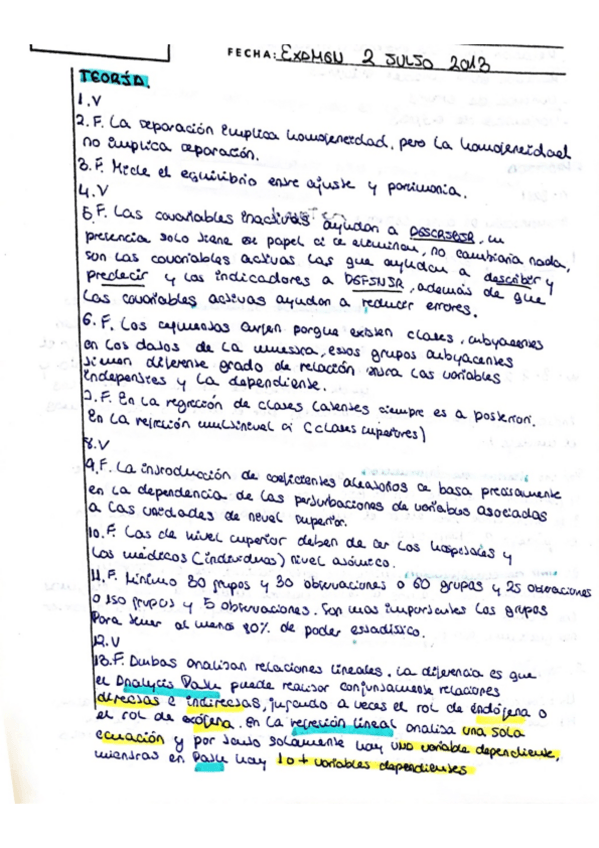 FECHA: EXAMEN 2 JULIO 2013
TEORÍA.
1. V
2. F. La separación implica homogeneidad, pero la homogeneidad
no implica separación.
3. F. Mide el equilibrio entre ajuste y parsimonia.
4. V
5. F. Las covariables inactivas ayudan a DESCRIBIR, su
presencia solo tiene ese papel si se eliminan, no cambiaría nada,
son las covariables activas las que ayudan a describir y
predecir y los indicadores a DEFINIR, además de que
las covariables activas ayudan a reducir errores.
6. F. Los segmentos surgen porque existen clases subyacentes
en los datos de la muestra, esos grupos subyacentes
tienen diferente grado de relación entre las variables
independientes y la dependiente.
7. F. En la regresión de clases latentes siempre es a posteriori.
En la regresión multinivel si (clases superiores)
8. V
9. F. La introducción de coeficientes aleatorios se basa precisamente
en la dependencia de las perturbaciones de variables asociadas
a las unidades de nivel superior.
10. F. Las de nivel superior deben de ser los hospitales y
los médicos (individuos) nivel atómico.
11. F. Mínimo 30 grupos y 30 observaciones o 60 grupos y 25 observaciones
o 150 grupos y 5 observaciones. Son mas importantes los grupos
para tener al menos 80% de poder estadístico.
12. V
13. F. Ambas analizan relaciones lineales. La diferencia es que
el Analycis Path puede realizar conjuntamente relaciones
directas e indirectas, jugando a veces el rol de endógena o
el rol de exógena. En la regresión lineal analiza una sola
ecuación y por tanto solamente hay una variable dependiente,
mientras en Path hay 1 o + variables dependientes